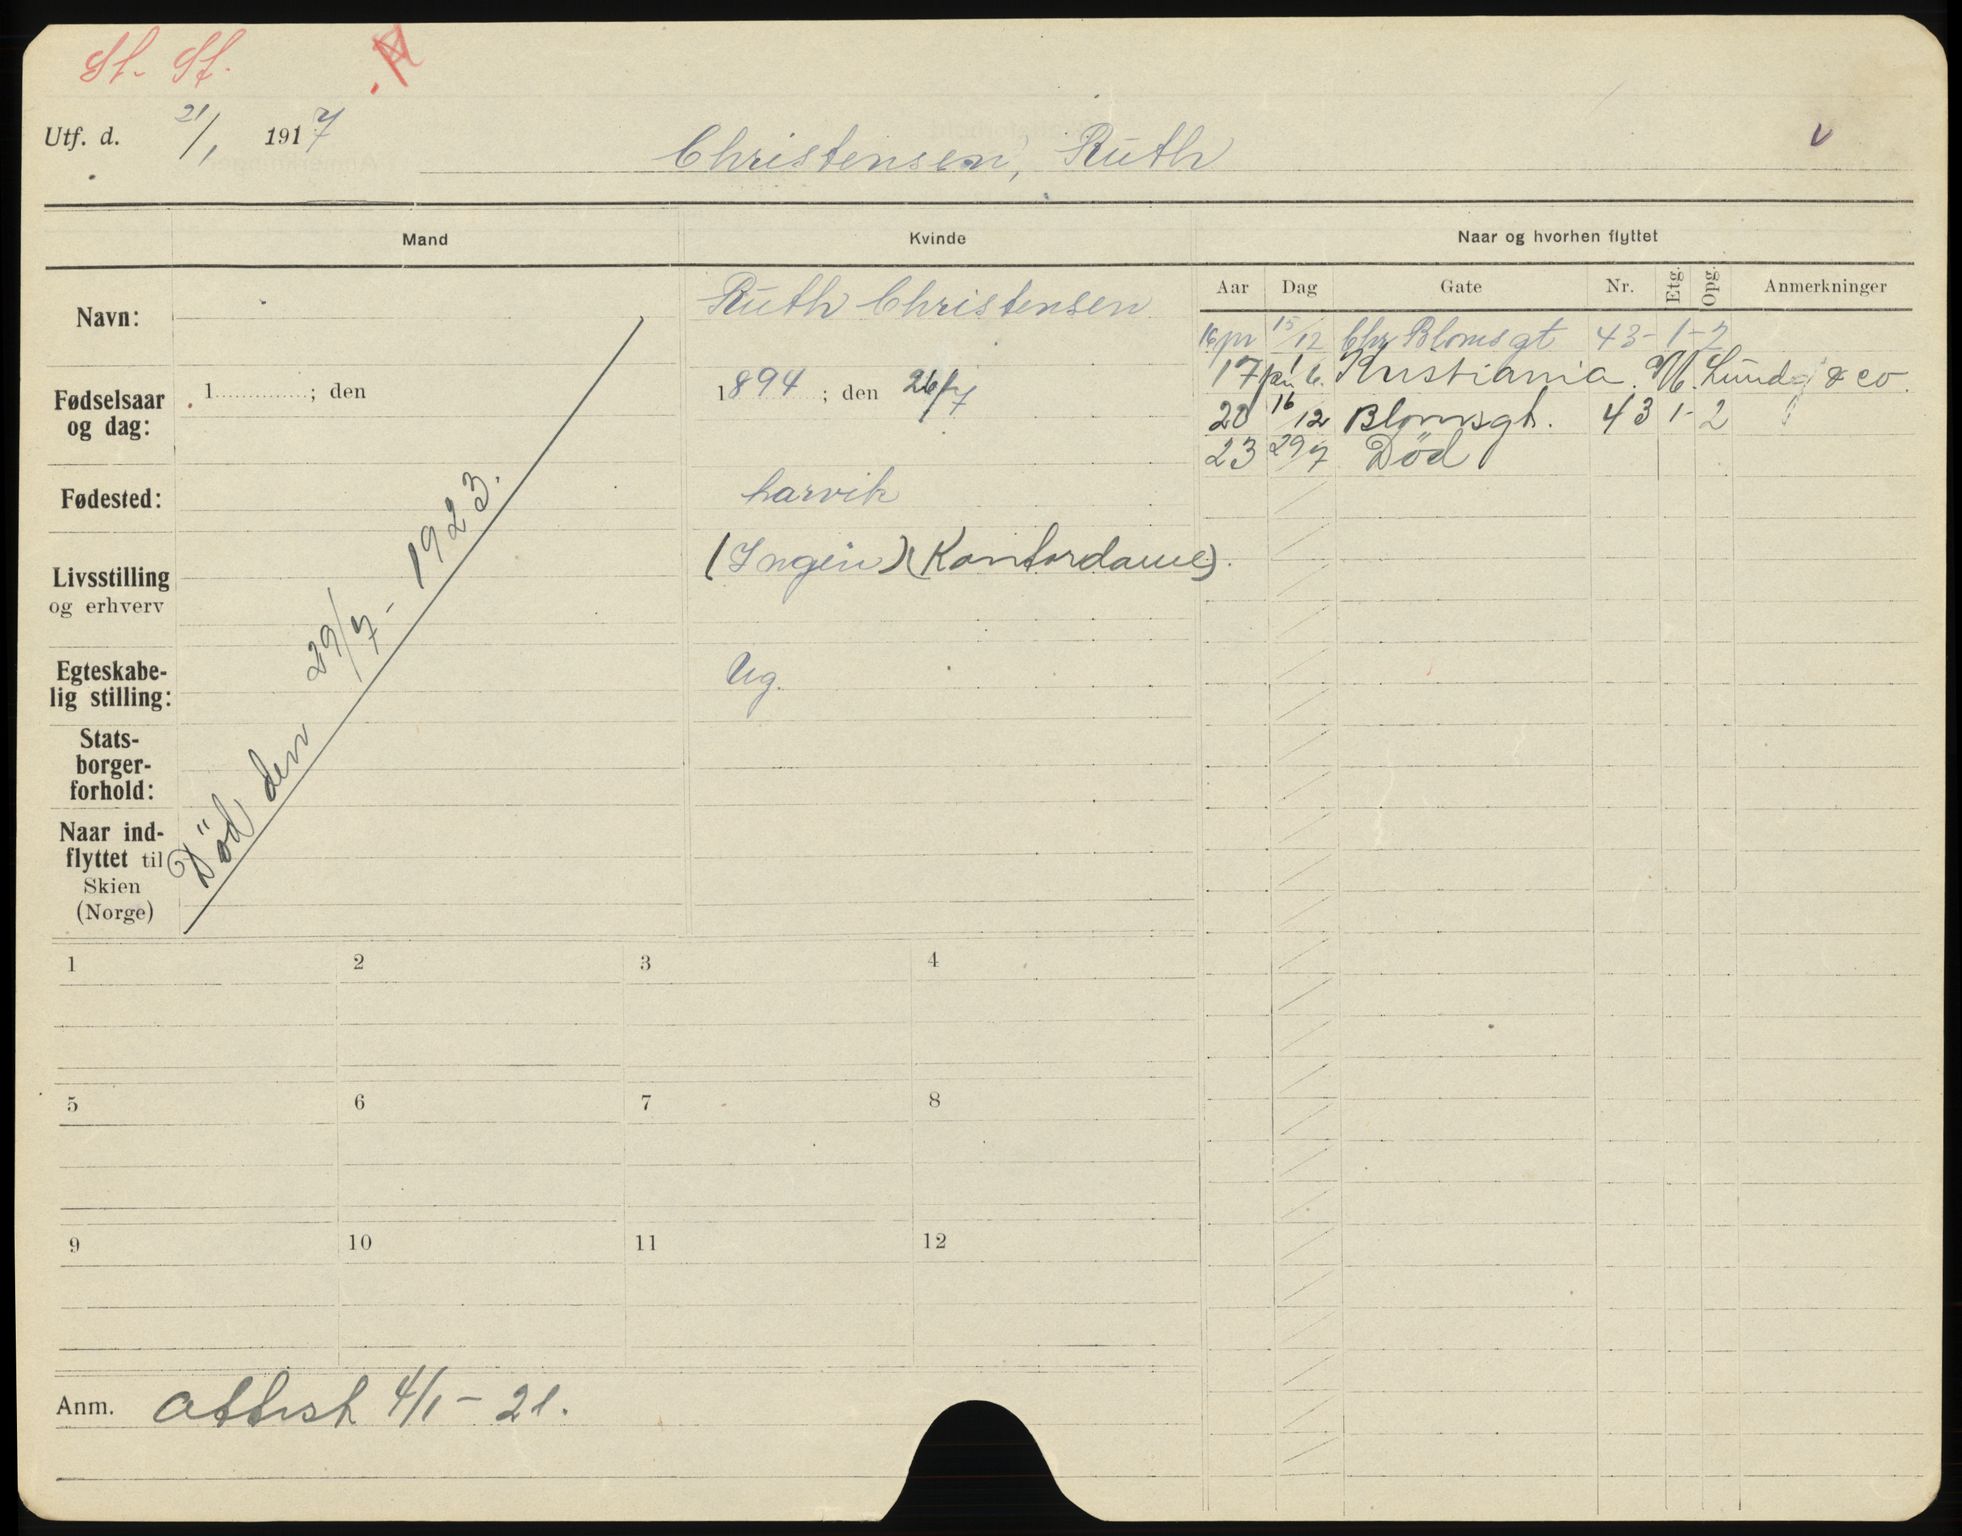 St. St.
Utf. d. 21/1 1917
Christensen, Ruth
v
Mand Kvinde Naar og hvorhen flyttet
Aar Dag Gate Nr. Etg. Opg. Anmerkninger
Navn: Ruth Christensen
16 pr 15/12 Chr Blomsgt 43- 1- 2
17 6. Kristiania. Lund & co.
Fødselsaar og dag: 1 ; den 1894 ; den 26/7
20 16/12 Blomsgt. 43 1- 2
23 29/7 Död
Fødested: Larvik
Livsstilling og erhverv (Ingen) (Kontordame).
Egteskabe-
lig stilling: Ug.
Stats-
borger-
forhold:
Naar ind-
flyttet til
Skien
(Norge)
Död den 29/7- 1923.
1 2 3 4
5 6 7 8
9 10 11 12
Anm. Attest 4/1- 21.